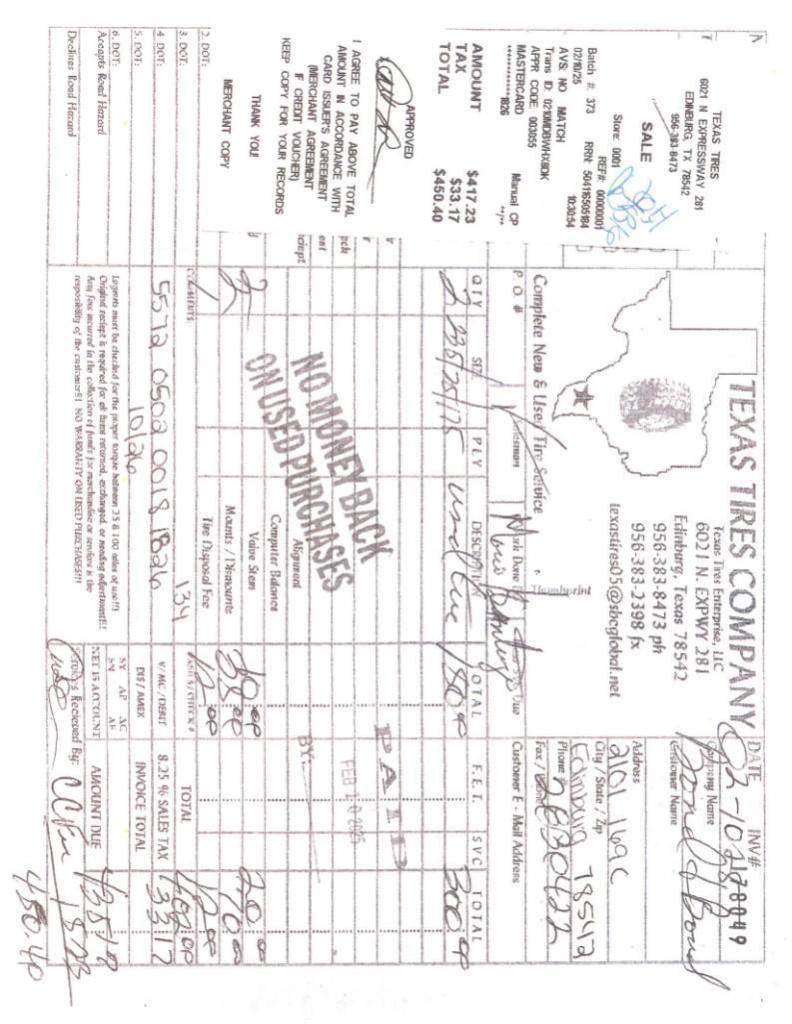 TEXAS TIRES
6021 N EXPRESSWAY 281
EDINBURG, TX 78542
956-383-8473
SALE
Store: 0001
REF#: 00000001
Batch #: 373
RRN: 504116505184
02/10/25
10:30:54
AVS: NO MATCH
Trans ID: 0210MDBWHX8DK
APPR CODE: 003055
MASTERCARD
Manual CP
************1826
**/**
AMOUNT $417.23
TAX $33.17
TOTAL $450.40
APPROVED
I AGREE TO PAY ABOVE TOTAL
AMOUNT IN ACCORDANCE WITH
CARD ISSUER'S AGREEMENT
(MERCHANT AGREEMENT
IF CREDIT VOUCHER)
KEEP COPY FOR YOUR RECORDS
THANK YOU!
MERCHANT COPY
2. DOT:
3. DOT:
4. DOT:
5. DOT:
6. DOT:
Accepts Road Hazard
Declines Road Hazard
TEXAS TIRES COMPANY
Texas Tires Enterprise, LLC
6021 N. EXPWY 281
Edinburg, Texas 78542
956-383-8473 ph
956-383-2398 fx
texastires05@sbcglobal.net
Complete New & Used Tire Service
DATE INV#
02-10 178049
Company Name
Bond & Bond
Customer Name
Address
2101 169C
City / State / Zip
Edinburg 78542
Phone
2830422
Fax /
Customer E - Mail Address
P. O. #
Salesman
Work Done
Thumbprint
QTY SIZE PLY DESCRIPTION TOTAL F.E.T. SVC TOTAL
2 225/25/175 used tire 150.00 300.00
NO MONEY BACK
ON USED PURCHASES
PAID
FEB 10 2025
BY:
Alignment
Computer Balance
Valve Stem 20.00
2 Mounts / Dismounts 35.00 70.00
Tire Disposal Fee 12.00 12.00
COMMENTS:
134
TOTAL 402.00
5572 0502 0018 1826
V/MC/DEBIT
8.25 % SALES TAX 33.17
10/26
DIS/AMEX
INVOICE TOTAL
Lugnuts must be checked for the proper torque between 25 & 100 miles of use!!!
Original reciept is required for all items returned, exchanged, or needing adjustment!!!
Any fees incurred in the collection of funds for merchandise or services is the
responsibility of the customer!! NO WARRANTY ON USED PURCHASES!!!
NET 15 ACCOUNT
AMOUNT DUE 435.17
Recieved By:
450.40